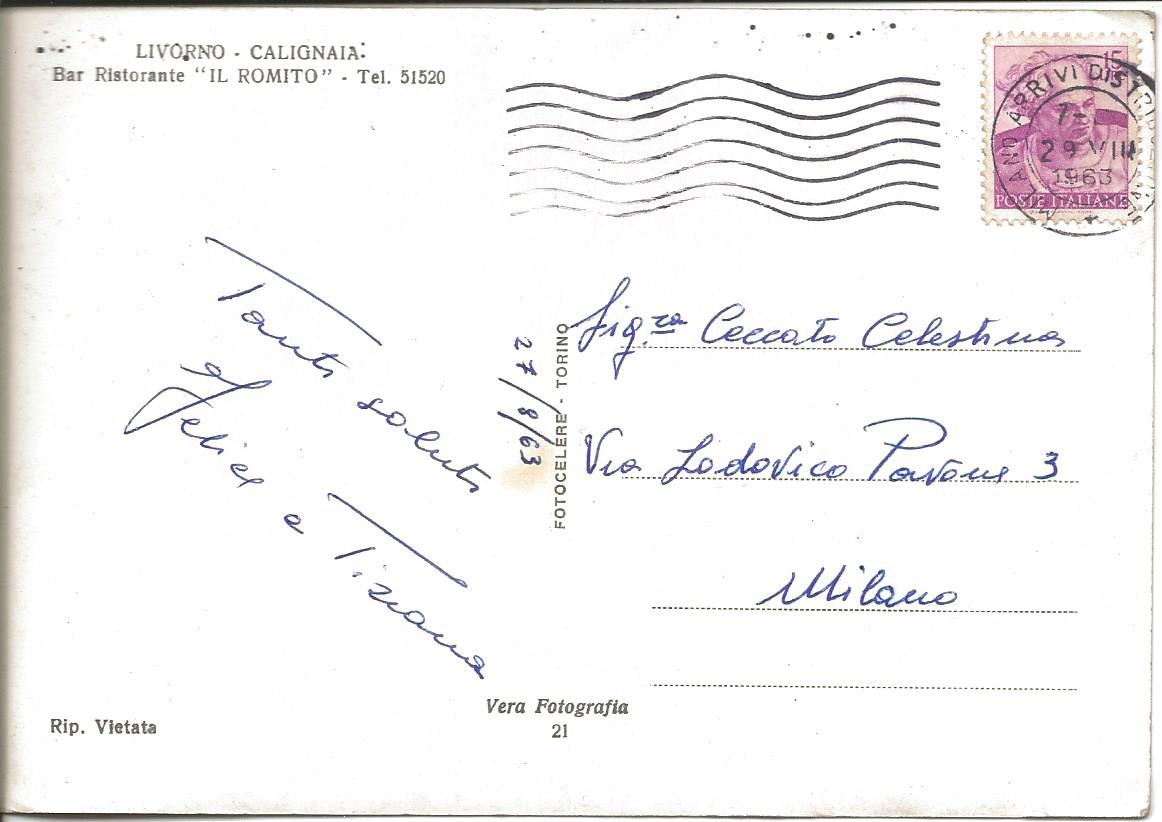 LIVORNO - CALIGNAIA:
Bar Ristorante "IL ROMITO" - Tel. 51520
15
POSTE ITALIANE
MILANO ARRIVI DISTR
29 VIII
1963
Tanti saluti
Felice e Tiziana
27/8/63
FOTOCELERE - TORINO
Sig.ra Ceccato Celestina
Via Lodovico Pavone 3
Milano
Vera Fotografia
21
Rip. Vietata